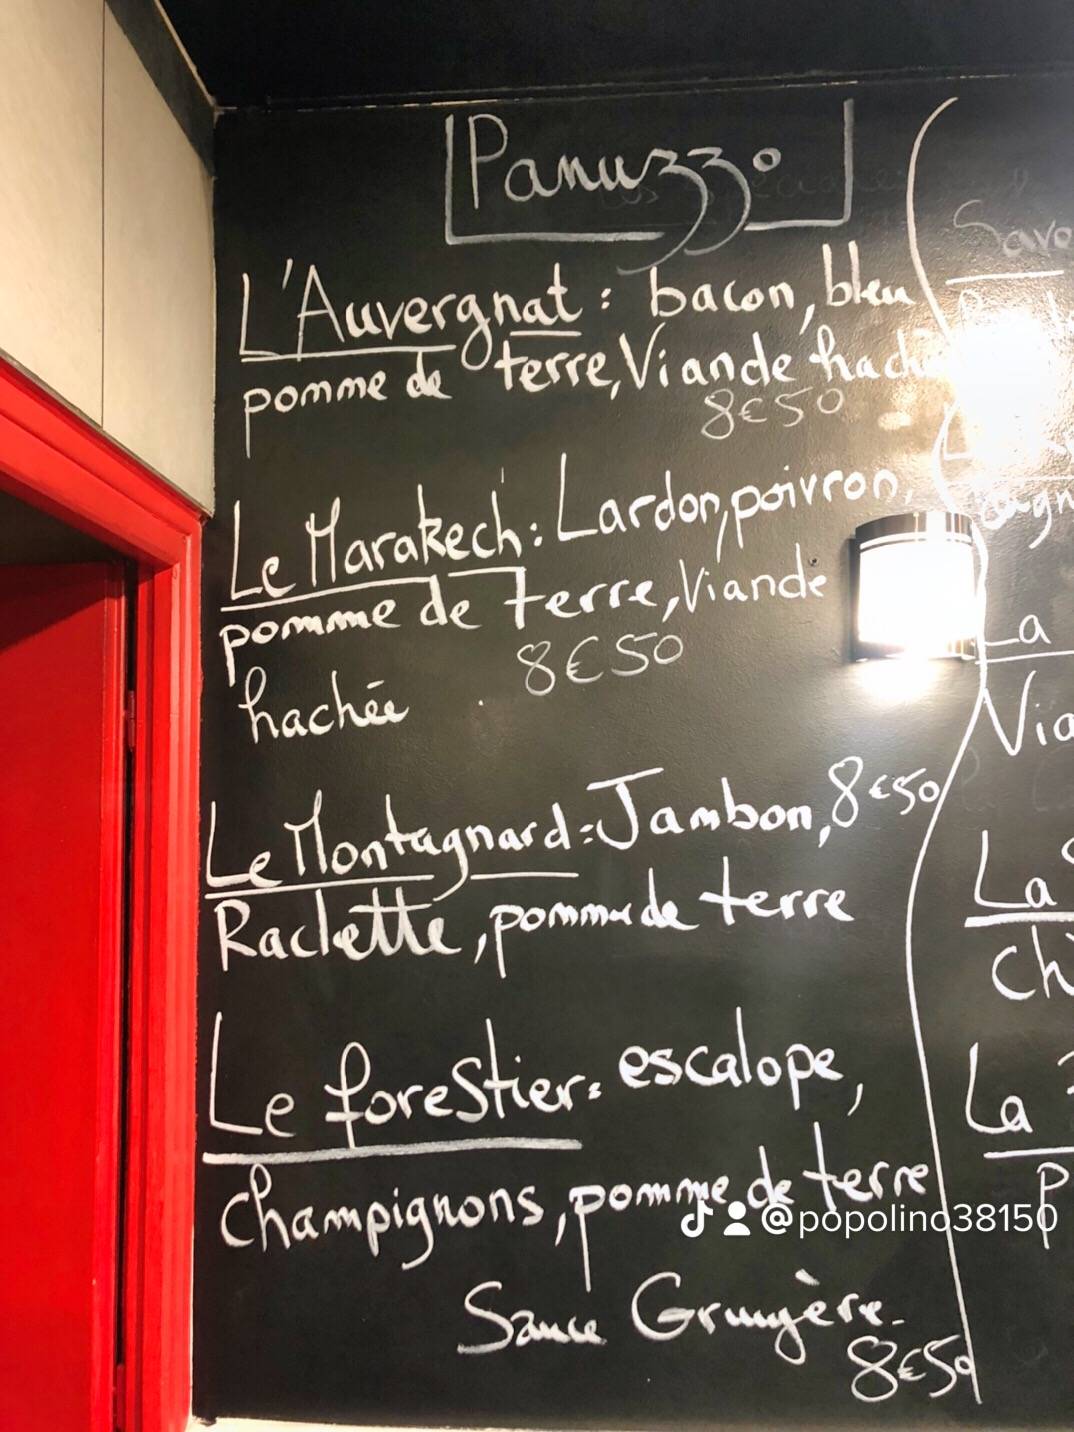 Panuzzo
L'Auvergnat : bacon, bleu
pomme de terre, Viande haché
8€50
Le Marakech : Lardon, poivron,
pomme de terre, Viande
hachée
8€50
Le Montagnard : Jambon, 8€50
Raclette, pomme de terre
Le forestier : escalope,
Champignons, pomme de terre
Sauce Gruyère.
8€50
Savo
La
Via
La
Ch
La
P
@popolino38150